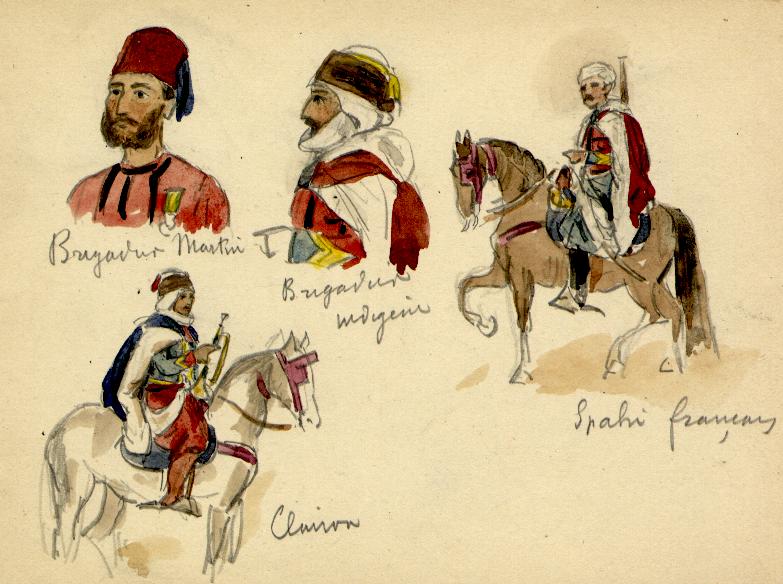 Brigadier Martin
Brigadier
indigène
Spahi français
Clairon